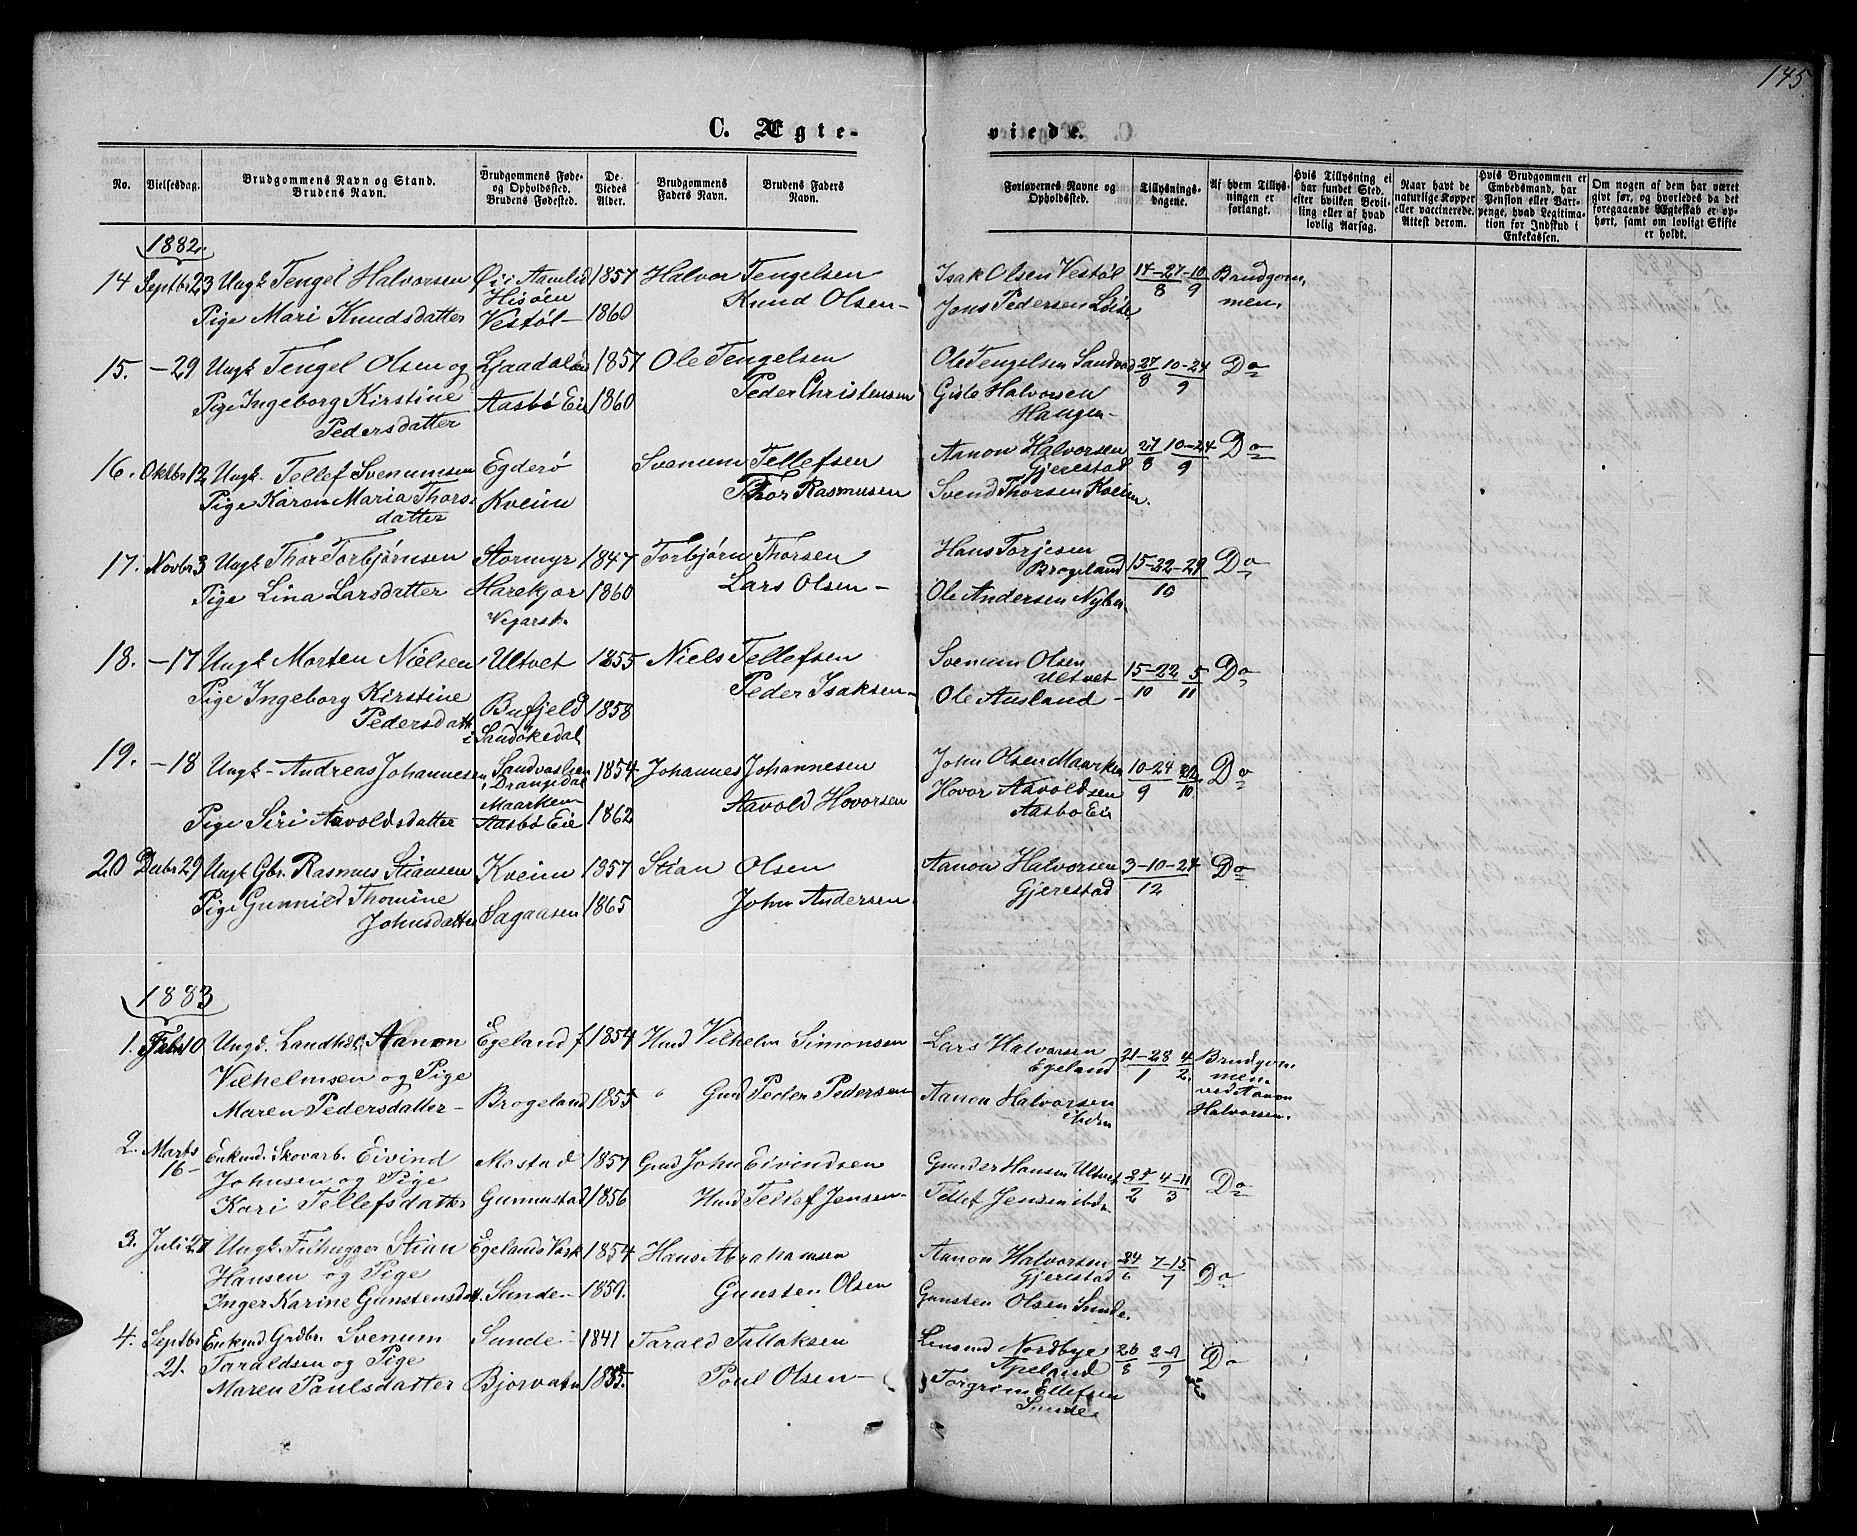 145.
C. Ægteviede.
No. Vielsesdag. Brudgommens Navn og Stand. Brudens Navn. Brudgommens Føde- og Opholdssted. Brudens Fødested. De Viedes Alder. Brudgommens Faders Navn. Brudens Faders Navn. Forlovernes Navne og Opholdssted. Tillysnings-dagene. Af hvem Tillysningen er forlangt. Hvis Tillysning ei har fundet Sted, efter hvilken Bevilling eller af hvad lovlig Aarsag. Naar havt de naturlige Kopper eller vaccinerede. Attest derom. Hvis Brudgommen er Embedsmand, har Pension eller Vartpenge, hvad Legitimation for Indskud i Enkekassen. Om nogen af dem har været givt før, og hvorledes da det foregaaende Ægteskab er ophørt, samt om lovligt Skifte er holdt.
1882.
14 Septbr 23 Ungk. Tengel Halvorsen Øi i Aamlid 1857 Halvor Tengelsen Isak Olsen Vestøl 14-27-10 Brudgom-
Hisøen 8 9 men
Pige Mari Knudsdatter Vestøl 1860 Knud Olsen Jens Pedersen
15. -29 Ungk Tengel Olsen og 1857 Ole Tengelsen Ole Tengelsen Sandvad 27 10-24 Do
Pige Ingeborg Kirstine Aasbø Eie 1860 Peder Christensen Gisle Halvorsen 8 9
Pedersdatter Haugen
16. Oktbr 12 Ungk. Tellef Svenumsen Egderø Svenum Tellefsen Aanon Halvorsen 27 10-24 Do
Gjerestad 8 9
Pige Karen Maria Thors- Kveim Thor Rasmusen Svend Thorsen Kveim.
datter
17. Novbr 3 Ungk Thor Torbjørnsen Stormyr 1847 Torbjørn Thorsen Hans Torjesen
Brogeland 15-22-29 Do
Pige Lina Larsdatter Harekjær 1860 Lars Olsen Ole Andersen 10
Vegarsh.
18. -17 Ungk Morten Nielsen Ultvet 1855 Niels Tellefsen Svenum Olsen
Ultvet 15-22 5 Do
Pige Ingeborg Kirstine Bufjeld 1858 Peder Isaksen Ole Ausland 10 11
Pedersdatt. i Sandøkedal
19. -18 Ungk- Andreas Johannesen 1854 Johannes Johannesen John Olsen Maarken 10-24 22 Do
i Drangedal 9 10
Maarken Hovor Aavoldsen
Pige Siri Aavoldsdatter Aasbø Eie 1862 Aavold Hovorsen Aasbo Eie
20 Decbr 29 Ungk Gbr. Rasmus Stiansen Kveim 1857 Stian Olsen Aanon Halvorsen 3-10-24 Do
Gjerestad 12
Pige Gunnild Thomine Sagaasen 1865 John Andersen
Johnsdatter
1883
1. Febr 10 Ungk. Landhdl. Aanon Egeland f 1854 Husd Vilhelm Simonsen Lars Halvorsen 21-28 4 Brudgom-
Egeland 1 2 men
Vilhelmsen og Pige ved Aanon
Maren Pedersdatter Brogeland 1855 " Gmd Peder Pedersen Aanon Halvorsen Halvorsen.
2. Marts Enkmd. Skovarb. Eivind Mostad 1857 Gmd John Eivindsen Gunder Hansen Ultvet 25 4-11 Do
16- 2 3
Johnsen og Pige
Kari Tellefsdatter Gunnustad 1856 Husd Tellef Jensen Tellef Jensen
3. Juli 27 Ungk. Filhugger Stian Egelands Værk 1854 Hans Abrahamsen Aanon Halvorsen 24 7-15 Do
Gjerestad 6 7
Hansen og Pige
Inger Karine Gunstensdatt. Sunde 1859. Gunsten Olsen Gunsten Olsen Sunde.
4. Septbr Enkmd Grdbr. Svenum Sunde 1841 Tarald Tallaksen Lensmd Nordbye 26 2-9 Do
21. Apeland 8 9
Taraldsen og Pige
Maren Poulsdatter Bjorvatn 1855. Poul Olsen Torgrim Ellefsen
Sunde